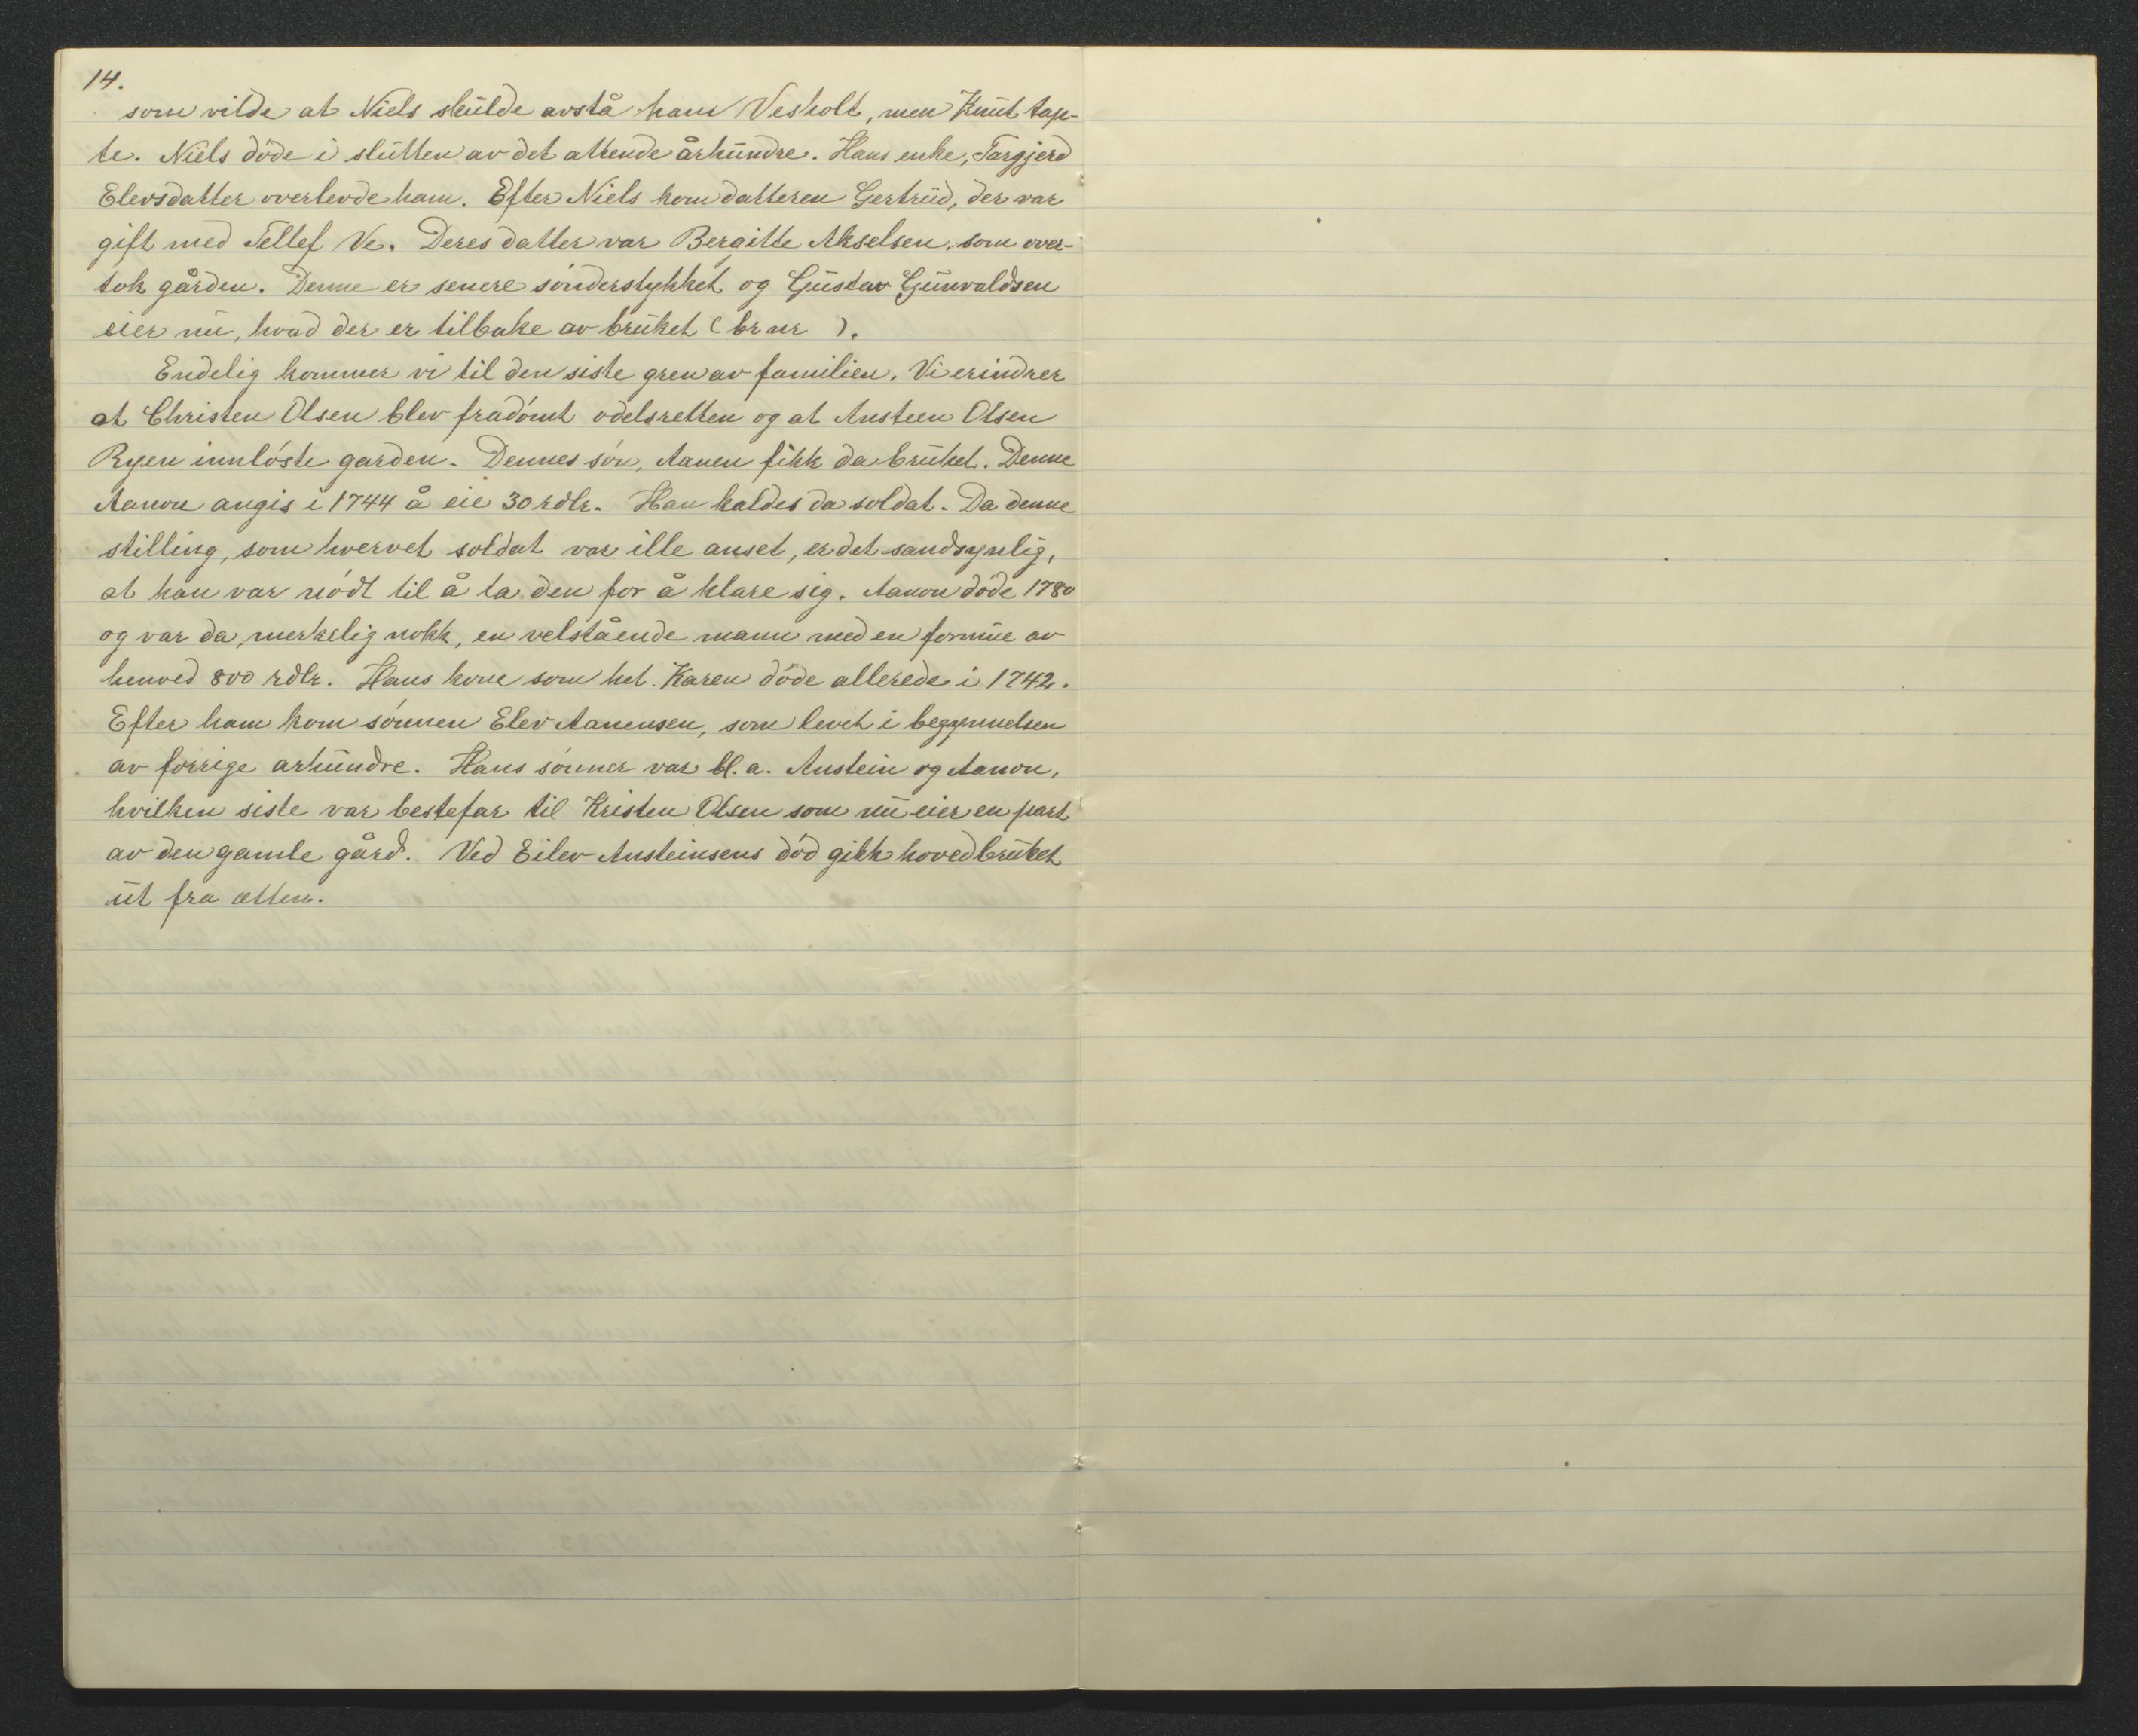 14.
som vilde at Niels skulde avstå ham Vesholt, men Knut tap-
te. Niels döde i slutten av det attende århundre. Hans enke, Targjerd
Elevsdatter overlevde ham. Efter Niels kom datteren Gertrud, der var
gift med Tellef Ve. Deres datter var Bergitte Akselsen, som over-
tok gården. Denne er senere sönderstykket og Gustav Gunvaldsen
eier nu, hvad der er tilbake av bruket (br nr ).
Endelig kommer vi til den siste gren av familien. Vi erindrer
at Christen Olsen blev fradömt odelsretten og at Austeen Olsen
Ryen innlöste garden. Dennes sön, Aanen fikk da bruket. Denne
Aanon angis i 1744 å eie 30 rdlr. Han kaldes da soldat. Da denne
stilling, som hvervet soldat var ille anset, er det sandsynlig,
at han var nödt til å ta den for å klare sig. Aanon döde 1780
og var da, merkelig nokk, en velstående mann med en formue av
henved 800 rdlr. Hans kone som het Karen döde allerede i 1742.
Efter ham kom sönnen Elev Aanensen, som levet i begynnelsen
av forrige arhundre. Hans sönner var bl.a. Austein og Aanon,
hvilken siste var bestefar til Kristen Olsen som nu eier en part
av den gamle gård. Ved Eilev Austeinsens död gikk hovedbruket
ut fra ætten.